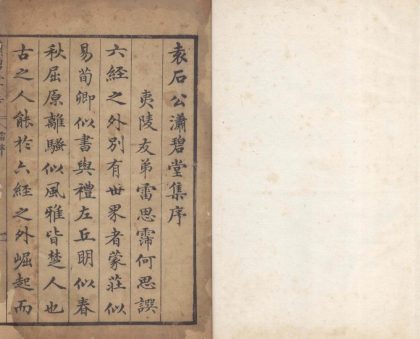 袁石公瀟碧堂集序
夷陵友弟雷思霈何思譔
六經之外別有世界者蒙莊似
易荀卿似書與禮左丘明似春
秋屈原離騷似風雅皆楚人也
古之人能於六經之外崛起而